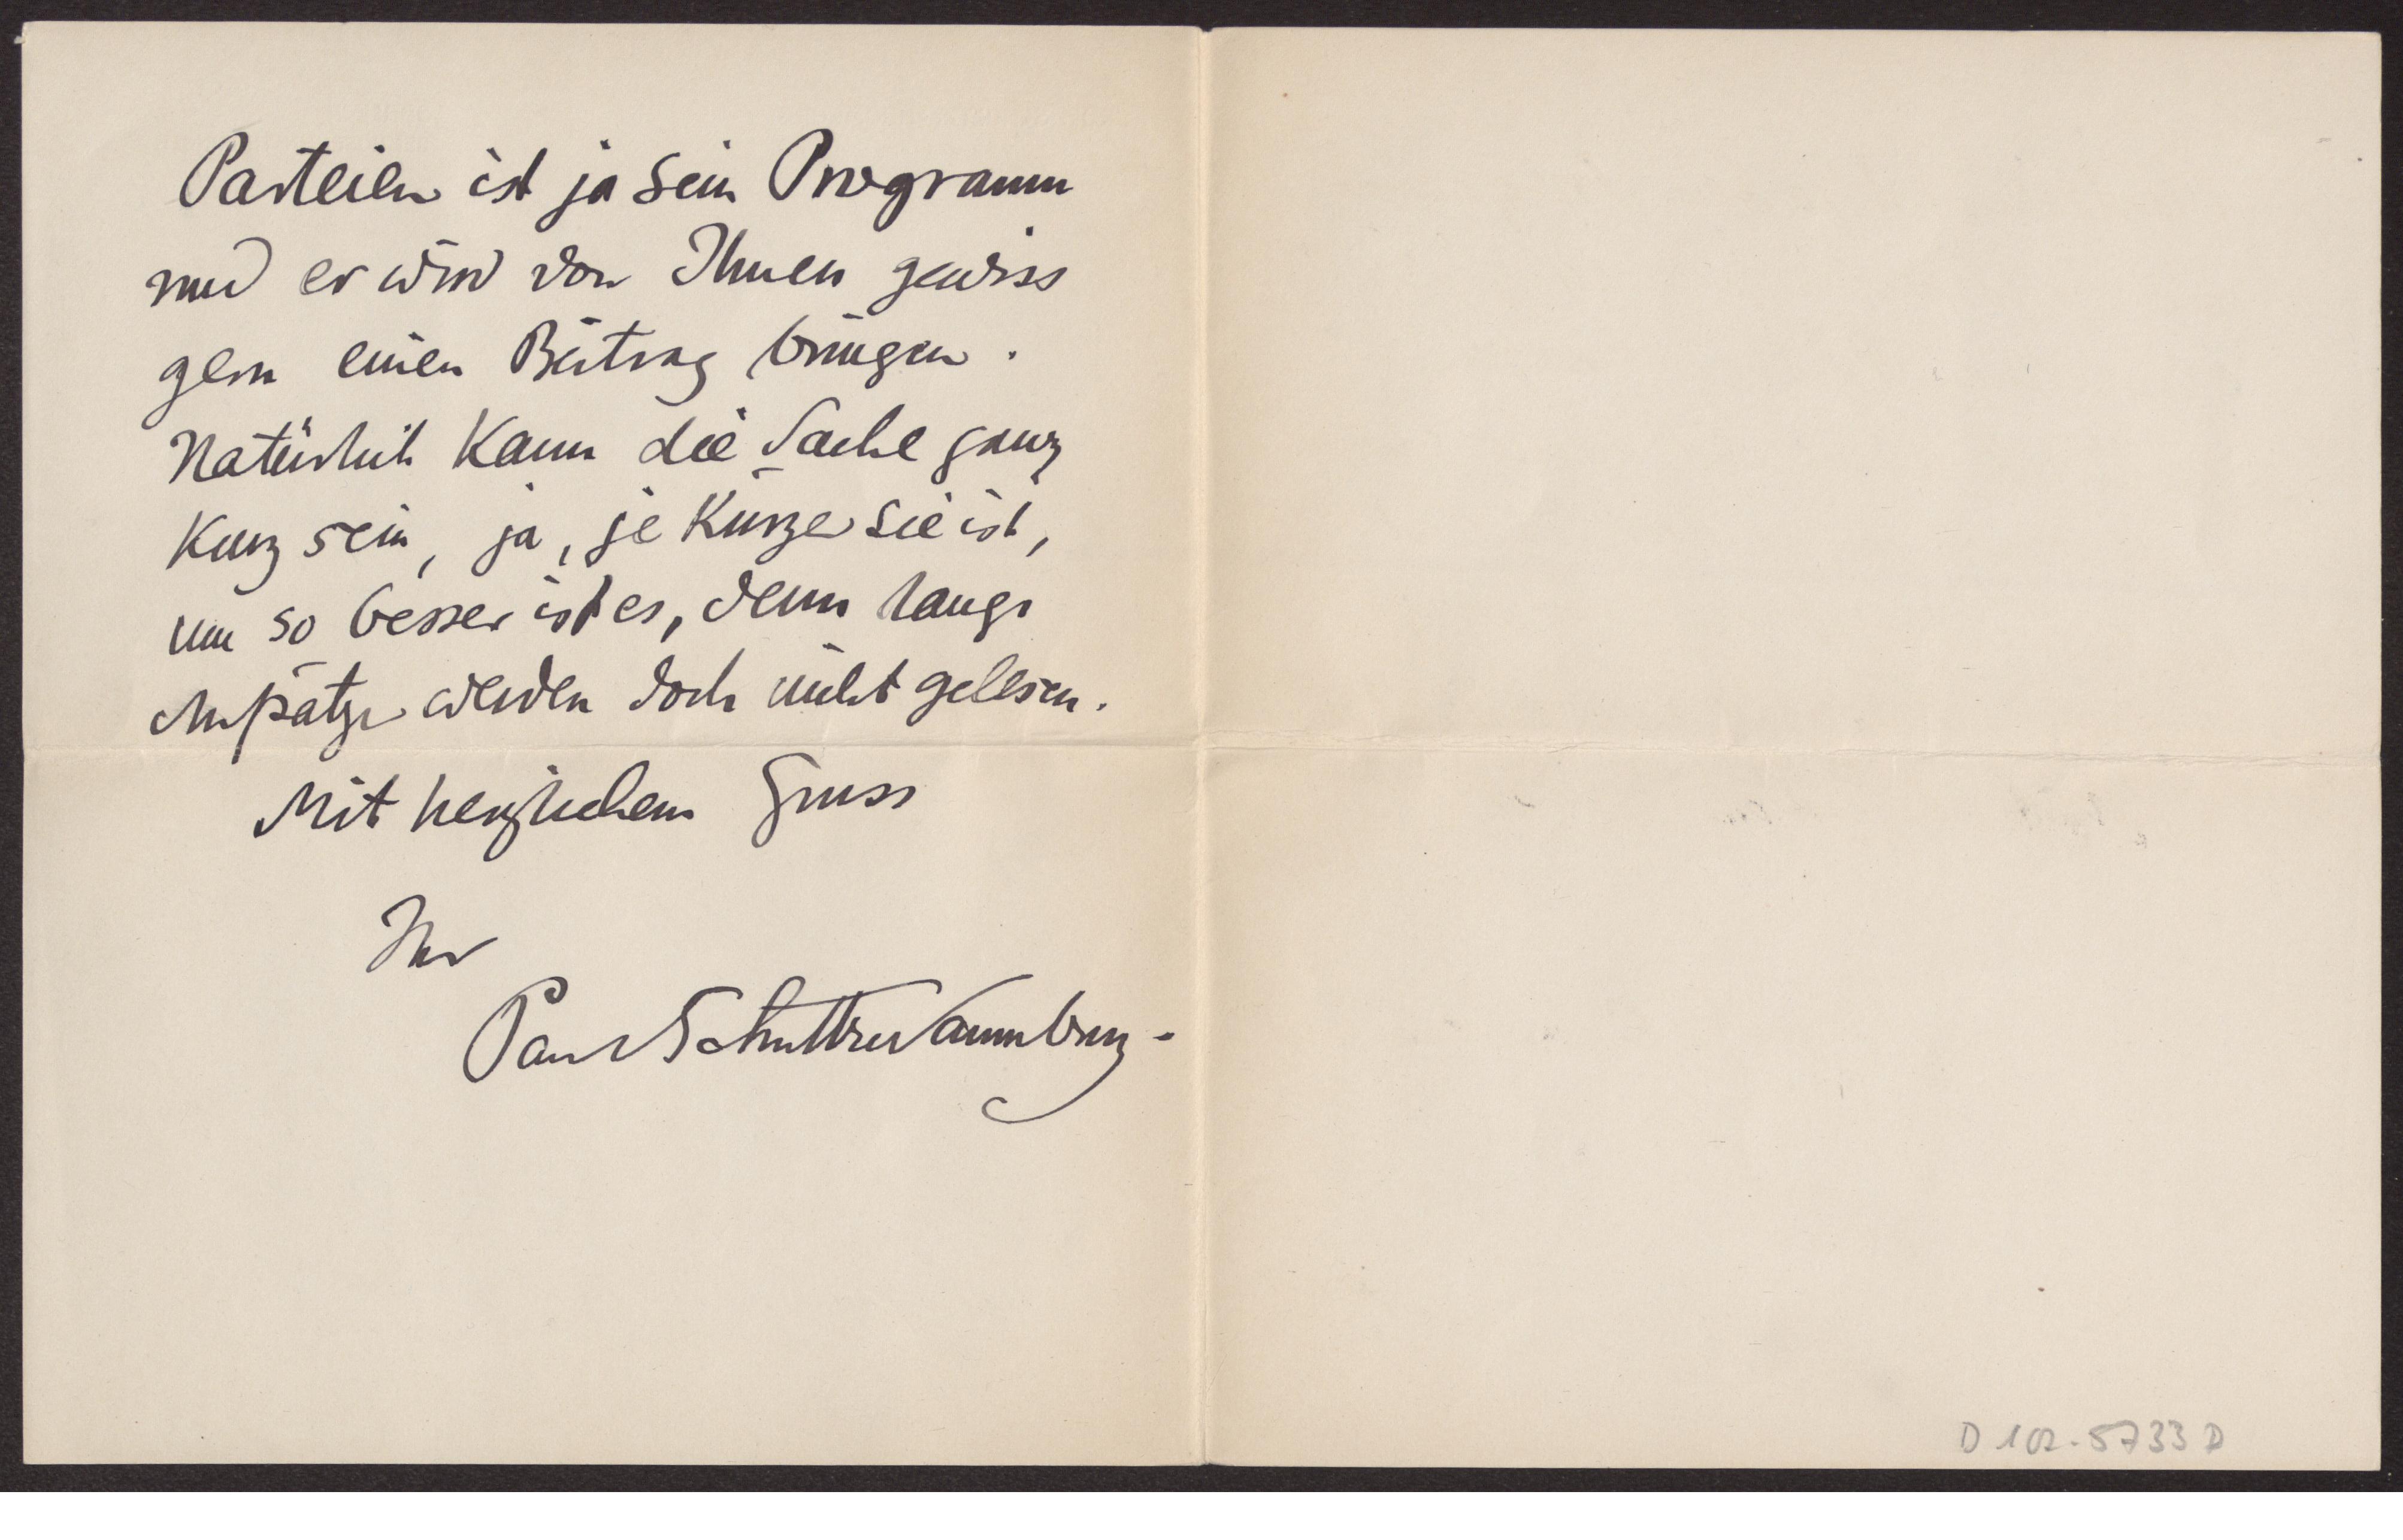 Parteien ist ja sein Programm
und er wird von Ihnen gewiss
gern einen Beitrag bringen.
Natürlich kann die Sache ganz
kurz sein, ja, je kürzer sie ist,
um so besser ist es, denn lange
Aufsätze werden doch nicht gelesen.
Mit herzlichem Gruss
Ihr
Paul Schultze Naumburg.
D 102.5733 D